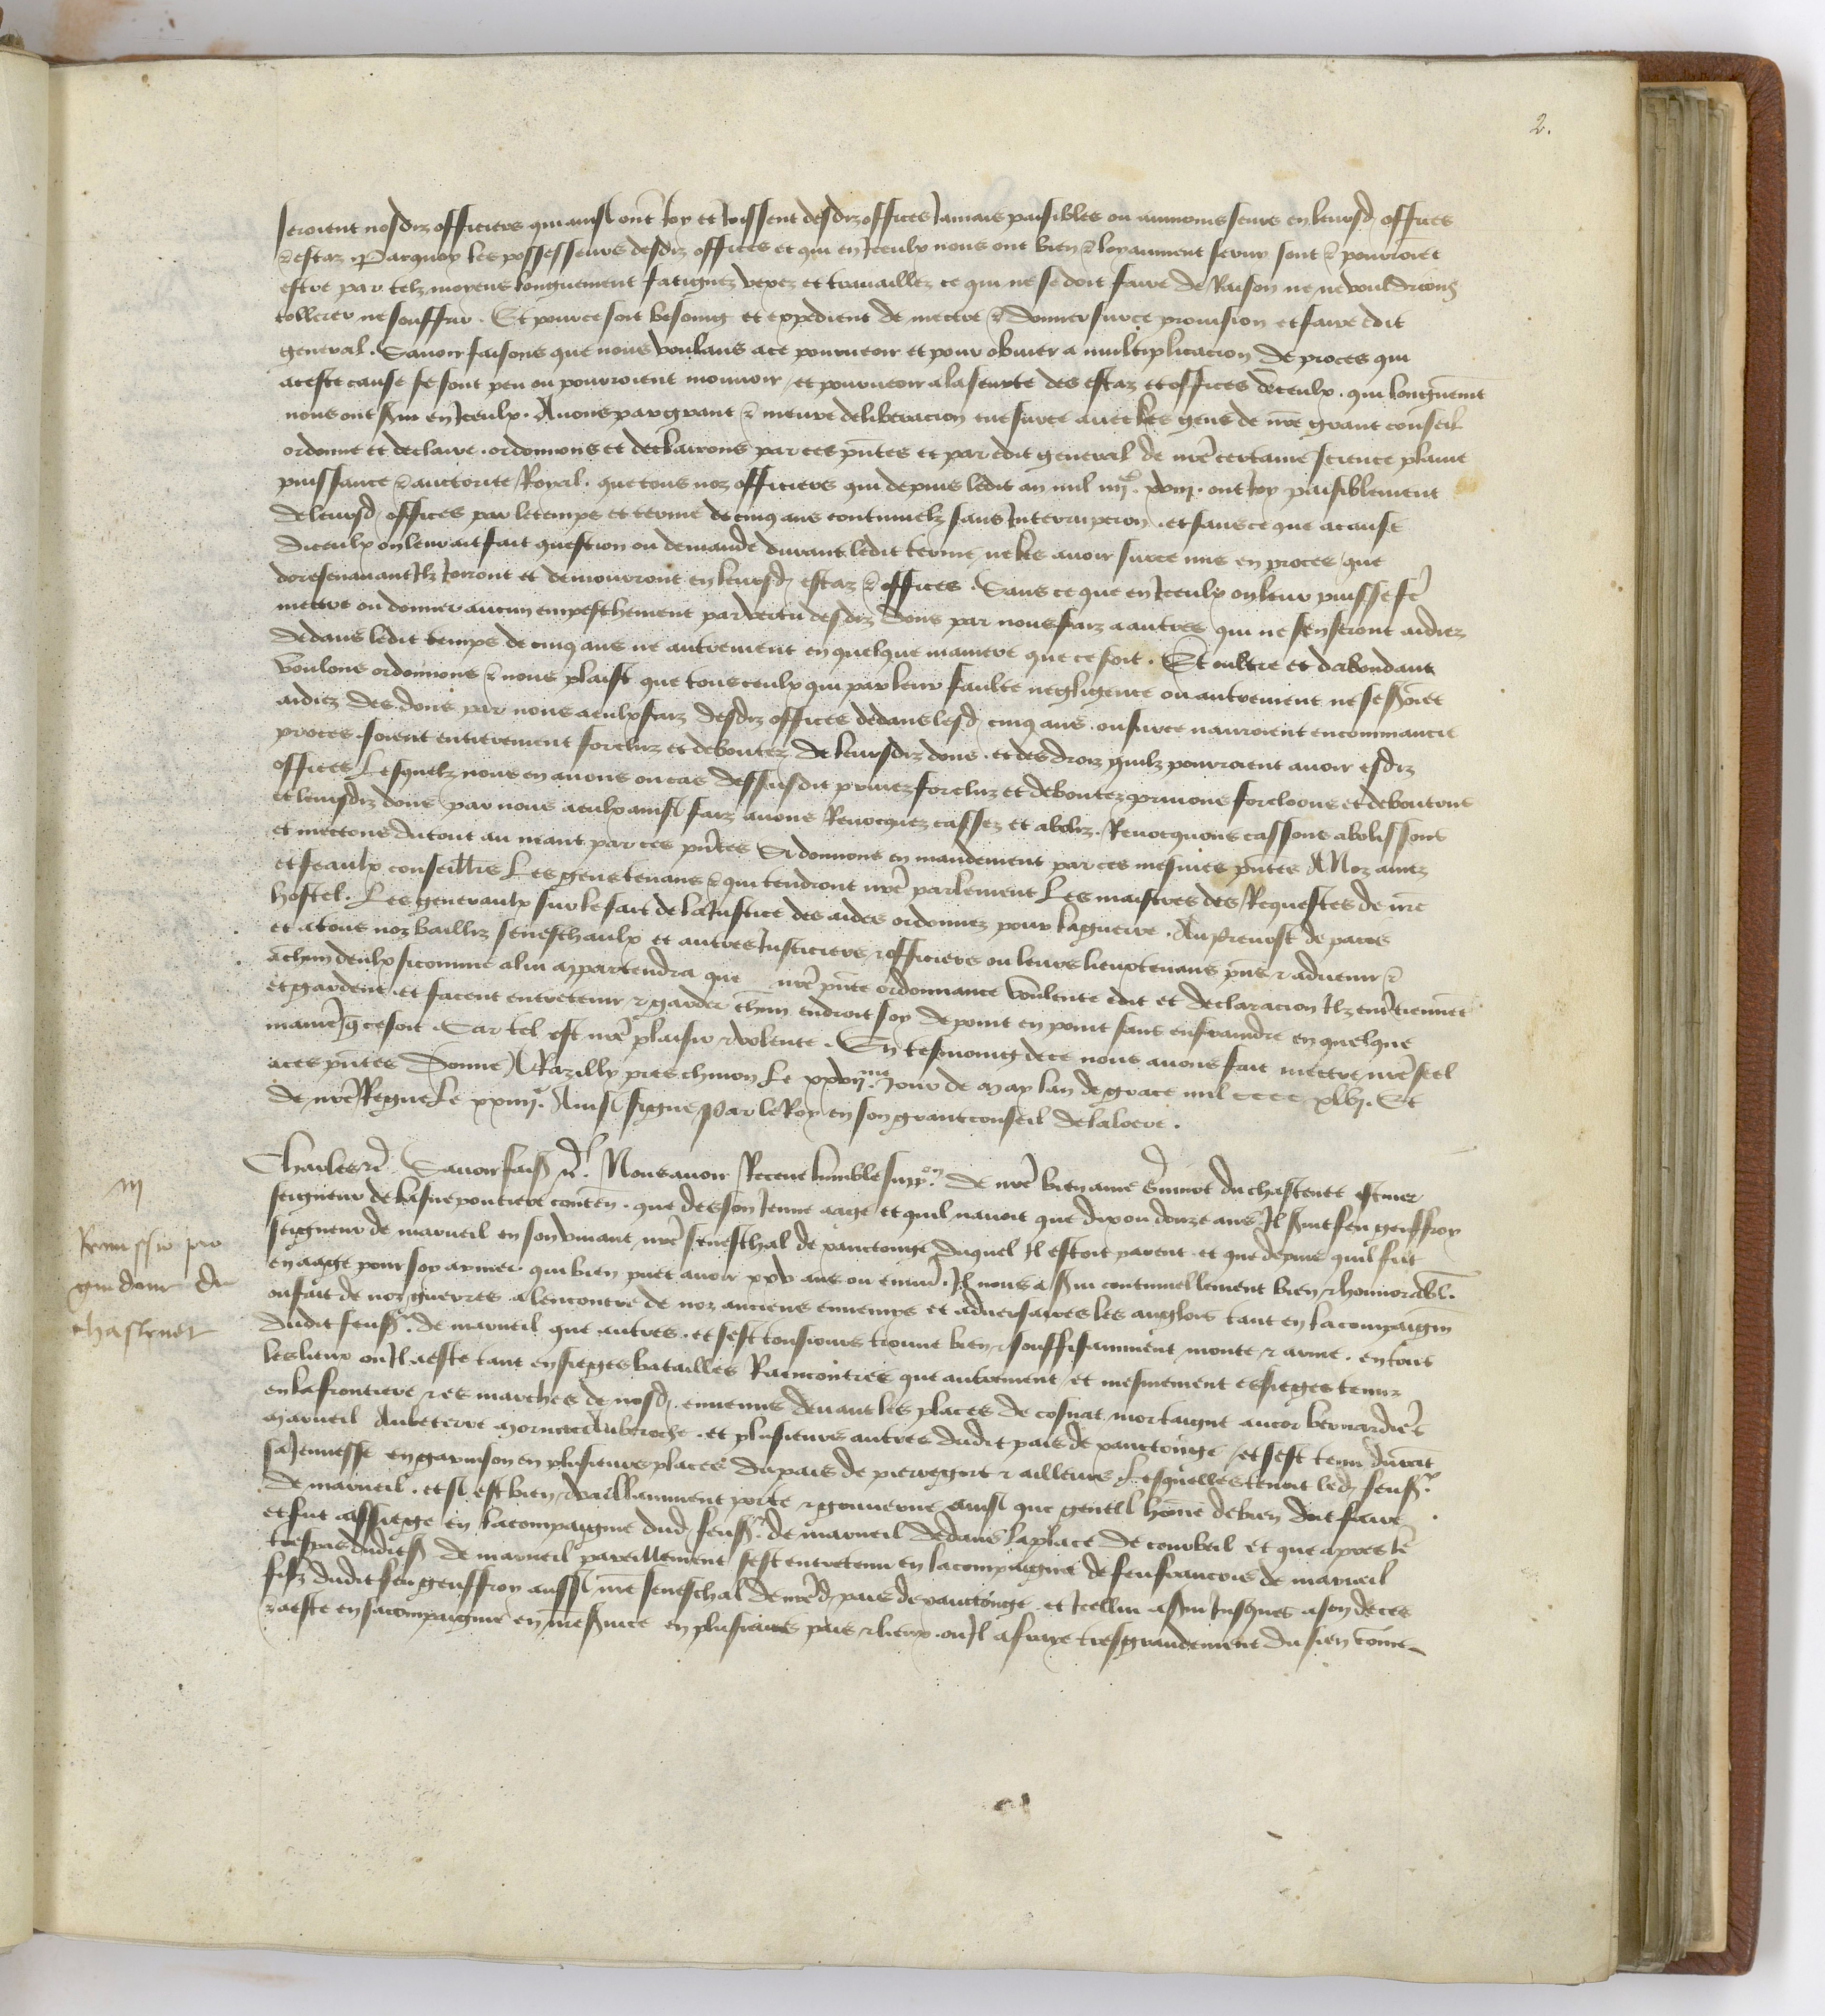 2.
seroient nosdiz officiers qui ainsi ont joy et joissent desdiz offices jamais paisibles ou aumoins seurs en leursd offices
et estaz. Parquoy les possesseurs desdiz offices et qui en iceulx nous ont bien et loyaument servy sont et pourroiēt
estre par telz moyens longuement fatiguez vexez et travaillez ce qui ne se doit faire de Raison ne ne vouldrions
tollerer ne souffrir. Et pource soit besoing et expedient de mectre et donner surce provision et faire edit
general. Savoir faisons que nous voulans a ce pourveoir et pour obvier a multiplicacion de proces qui
a ceste cause se sont peu ou pourroient mouvoir et pourveoir a la seurte des estaz et offices diceulx. qui longuemēt
nous ont servi en iceulx. Avons par grant et meure deliberacion eue surce avec les gens de nre grant conseil
ordonne et declaire. ordonnons et declairons par ces pntes et par edit general de nre certaine science plaine
puissance et auctorite Royal. que tous noz officiers qui depuis ledit an mil iiijc. xviij. ont joy paisiblement
de leursd offices par le temps et terme de cinq ans continuelz sans interrupcion. et sans ce que a cause
diceulx on leur ait fait question ou demande durant ledit terme, ne les avoir surce mis en proces, que
doresenavant ilz joiront et demourront en leursd estaz et offices. Sans ce que en iceulx on leur puisse fē
mectre ou donner aucun empeschement par vertu desdiz dons par nous faiz a autres qui ne sen seront aidiez
dedans ledit temps de cinq ans ne autrement en quelque maniere que ce soit. Et oultre et dabondant
voulons ordonnons et nous plaist que tous ceulx qui par leur faulte negligence ou autrement ne se seroiēt
aidiez des dons par nous a eulx faiz desdiz offices dedans lesd cinq ans. ou surce nauroient encommancie
proces. soient entierement forcluz et deboutez de leursdiz dons. et des droiz quilz pourroient avoir esdiz
offices Lesquelz nous en avons ou cas dessusdit privez forcluz et deboutez privons forcloons et deboutons
et leursdiz dons par nous a eulx ainsi faiz avons Revocquez cassez et aboliz. Revocquons cassons abolissons
et mectons du tout au neant par ces pntes Si donnons en mandement par ces mesmes pntes A Noz amez
et feaulx conseillrs Les gens tenans et qui tendront nre parlement Les maistres des Requestes de nre
hostel. Les generaulx sur le fait de la justice des aides ordonnez pour la guerre. Au prevost de paris
et a tous noz bailliz seneschaulx et autres justiciers et officiers ou leurs lieuxtenans pns et advenir et
a chun deulx si comme a lui appartendra que nre pnte ordonnance voulente edit et declaracion ilz entretiennēt
et gardent. et facent entretenir et garder chun endroit soy de point en point sans enfraindre en quelque
manie que ce soit. Car tel est nre plaisir et volente. En tesmoing de ce nous avons fait mectre nre seel
a ces pntes Donne A Razilly pres chinon Le xxvijme. jour de may lan de grace mil cccc xlvj. Et
de nre Regne Le xxiiije. Ainsi signe Par le Roy en son grant conseil delaloere.
iij
Remissio pro
guidone du
chastenet
Charles etc Savoir fais. etc. Nous avoir Receue lumble suppon. de nre bien ame du chastenet escuier
seigneur de conten. que des son jeune aage et quil navoit que dix ou douze ans Il servit feu geuffroy
seigneur de mareuil en son vivant nre seneschal de xanctonge duquel Il estoit parent. et que depuis quil fut
en aage pour soy armer. qui bien puet avoir xxv ans ou environ. Il nous a servi continuellement bien et honnorabl.
ou fait de noz guerres. a lencontre de noz anciens ennemys et adversaires les anglois tant en la compaignie
dudit feu sr. de mareuil que autres. et sest tousjours trouve bien et souffisamment monte et arme. en tous
les lieux ou Il a este tant en sieges batailles Rancontres que autrement et mesmement es sieges tenuz
en la frontiere et es marches de nosd. ennemis devant les places de cosnac mortaigne bernardiēs
mareuil Aubeterre mornac Auberoche. et plusieurs autres dudit pais de xanctonge, et sest tenu durāt
sa jeunesse en garnison en plusieurs places du pais de pierregort et ailleurs. Lesquelles tenoit led feu sr.
de mareuil. et si est bien et vaillamment porte et gouverne ainsi que gentil hōme de bien doit faire
et fut assiege en la compaignie dud feu sr. de mareuil dedans la place de courbeil et que apres le
trespas dudit sr de mareuil pareillement sest entretenu en la compaignie de feu francois de mareuil
filz dudit feu geuffroy aussi nre seneschal de nred pais de xanctonge. et icellui a servi jusques a son deces
et a este en sa compaignie en nre service en plusieurs pais et lieux. ou Il a fraye tresgrandement du sien come